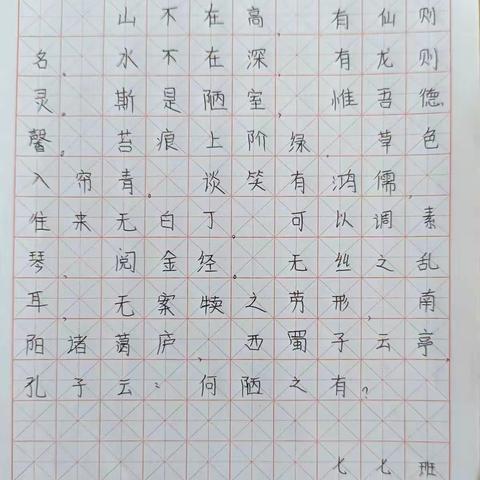 山不在高，有仙则
名。水不在深，有龙则
灵。斯是陋室，惟吾德
馨。苔痕上阶绿，草色
入帘青。谈笑有鸿儒，
往来无白丁。可以调素
琴，阅金经。无丝之乱
耳，无案牍之劳形，南
阳诸葛庐，西蜀子云亭，
孔子云：何陋之有？
七七班